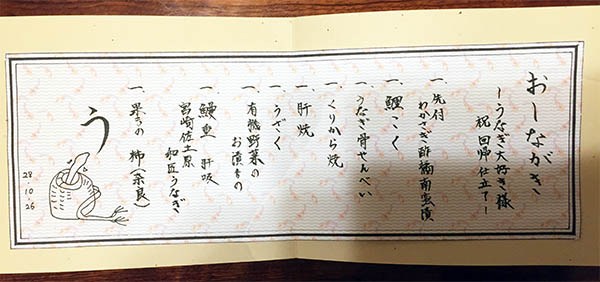 おしながき
ーうなぎ大好き様
祝 回帰 仕立てー
一、先付
わかさぎ酢橘南蛮漬
一、鯉こく
一、うなぎ骨せんべい
一、くりから焼
一、肝焼
一、うざく
一、有機野菜の
お漬もの
一、鰻重 肝吸
宮崎佐土原
和匠うなぎ
一、果もの 柿(奈良)
う
28
10
26